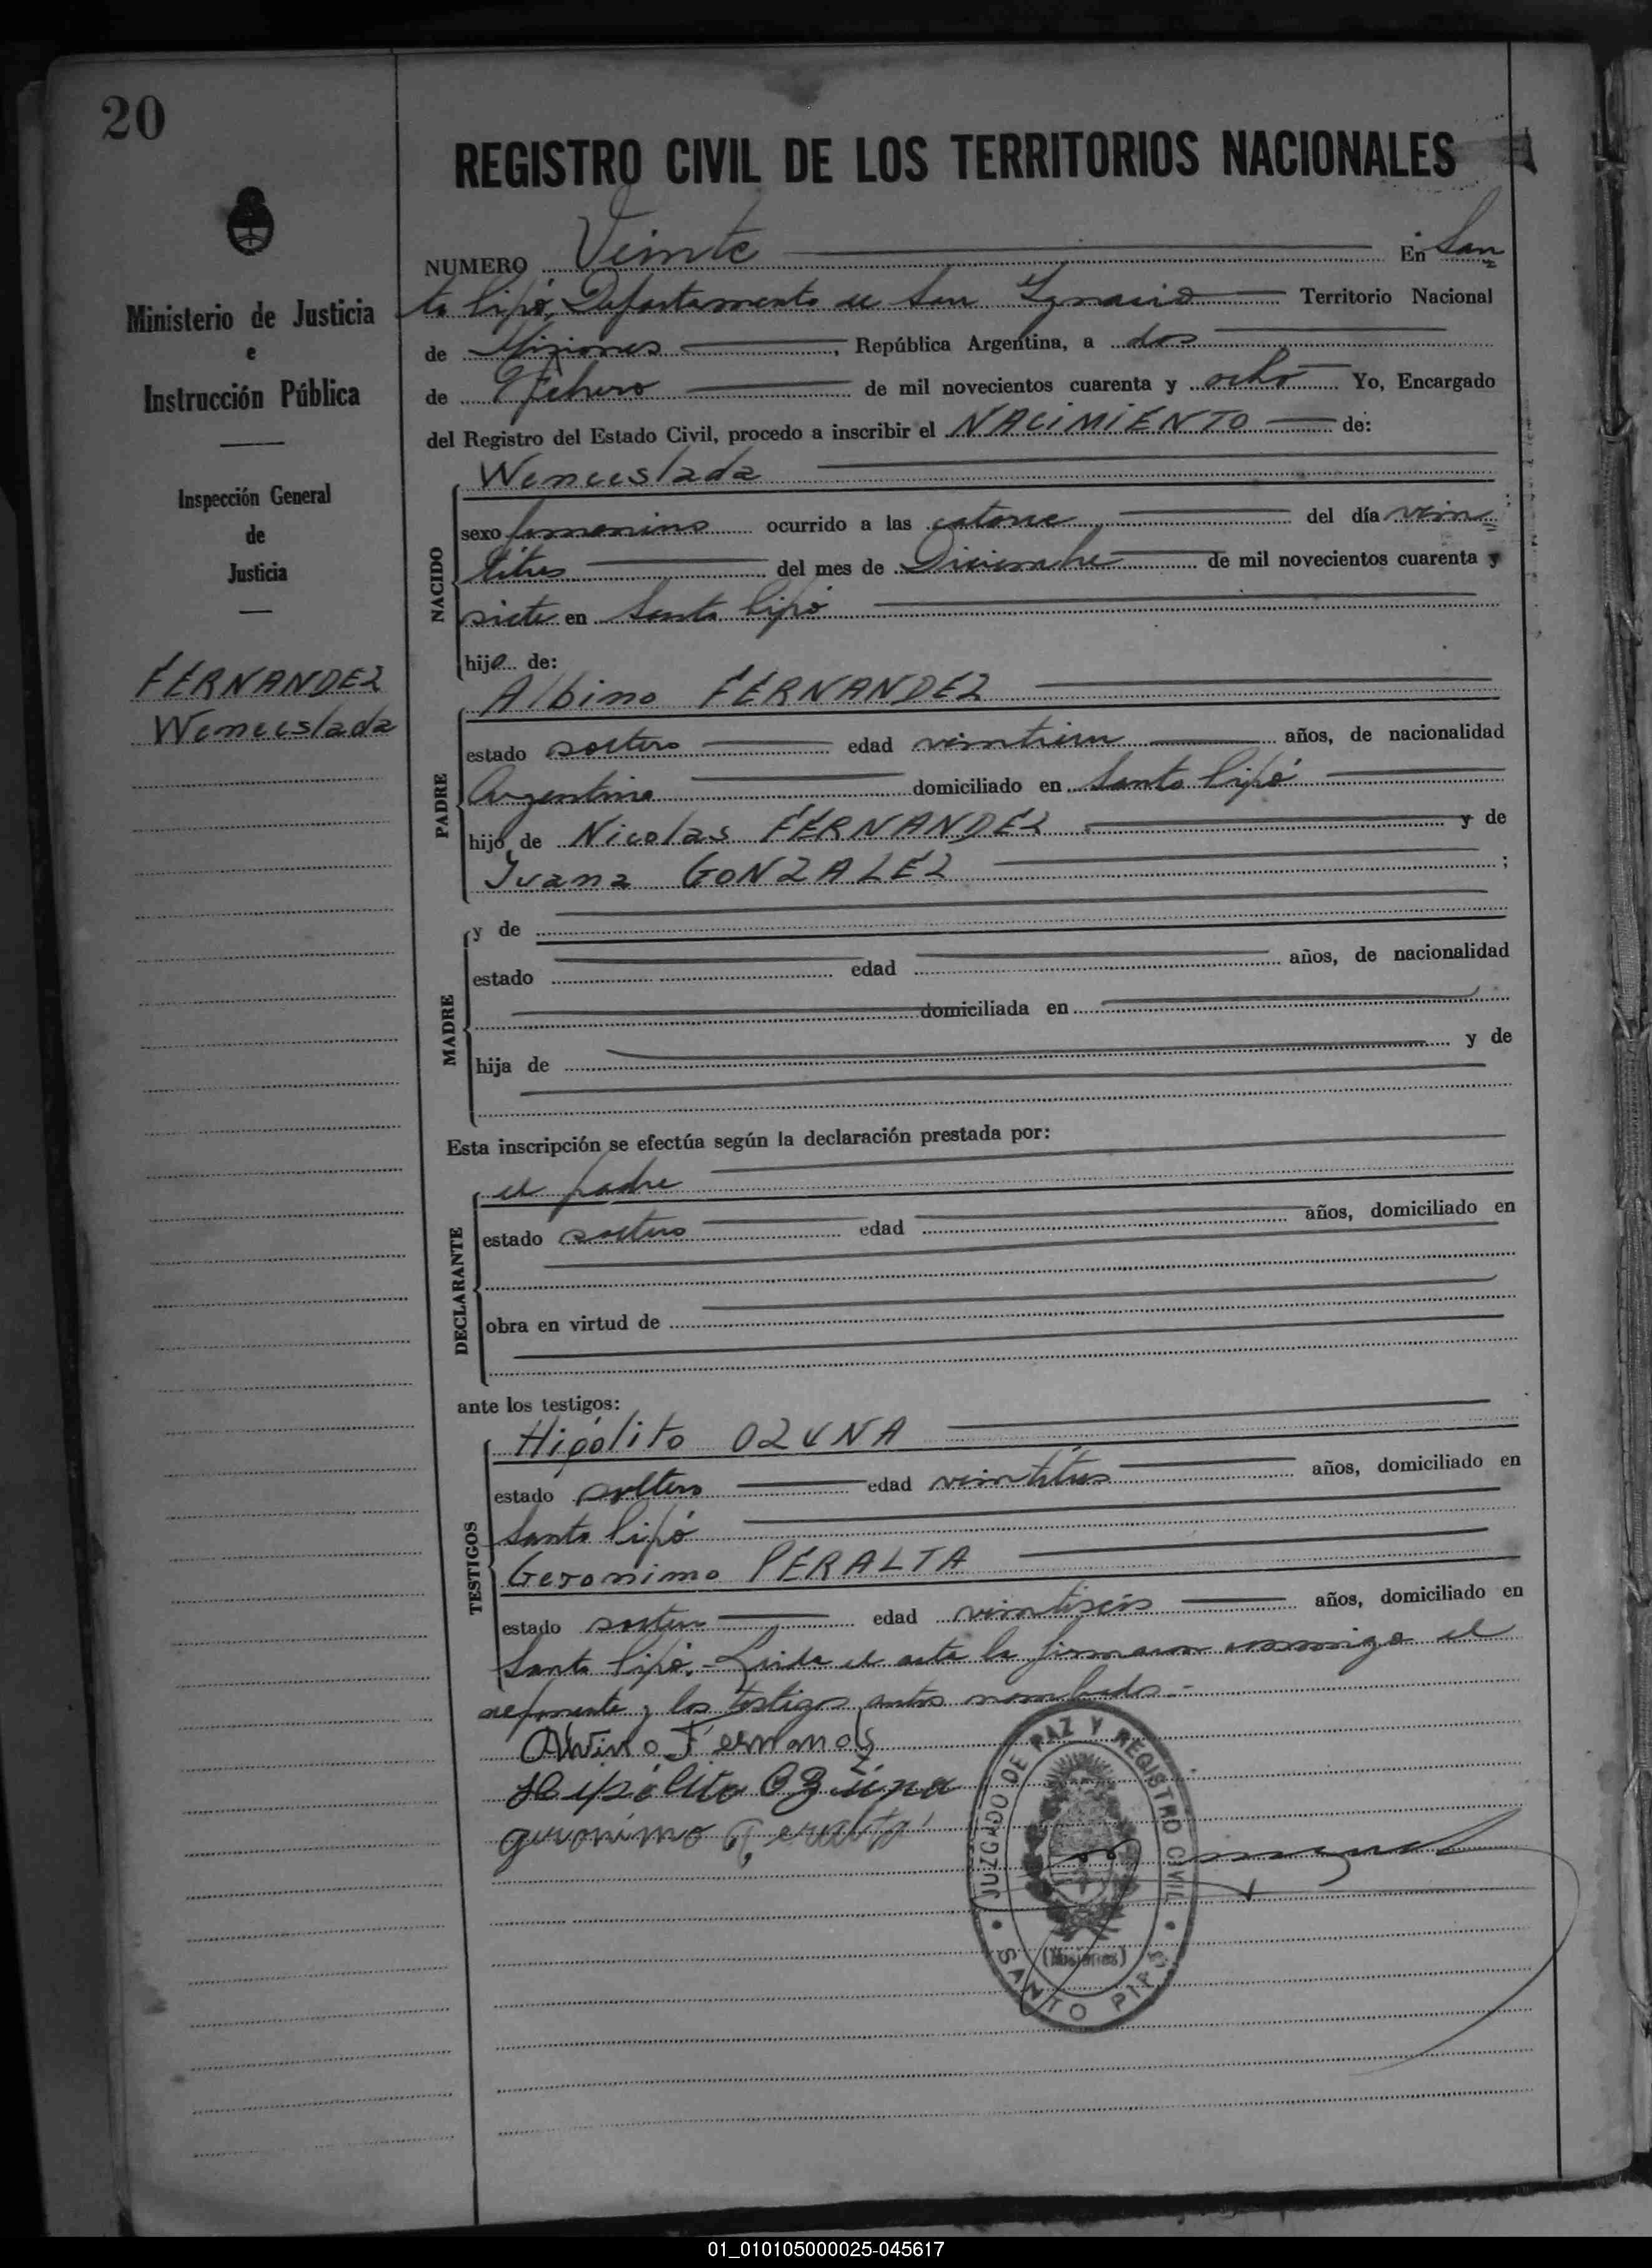 20
REGISTRO CIVIL DE LOS TERRITORIOS NACIONALES
Ministerio de Justicia
e
Instrucción Pública
Inspección General
de
Justicia
FERNANDEZ
Wenceslada
NUMERO Veinte En San
to Pipó, Departamento de San Ignacio Territorio Nacional
de Misiones, República Argentina, a dos
de Febrero de mil novecientos cuarenta y ocho Yo, Encargado
del Registro del Estado Civil, procedo a inscribir el NACIMIENTO de:
NACIDO
Wenceslada
sexo femenino ocurrido a las catorce del día vein
titres del mes de Diciembre de mil novecientos cuarenta y
siete en Santo Pipó
hija de:
PADRE
Albino FERNANDEZ
estado soltero edad veintiun años, de nacionalidad
Argentina domiciliado en Santo Pipó
hijo de Nicolas FERNANDEZ y de
Juana GONZALEZ ;
MADRE
y de
estado edad años, de nacionalidad
domiciliada en
hija de y de
Esta inscripción se efectúa según la declaración prestada por:
DECLARANTE
el padre
estado soltero edad años, domiciliado en
obra en virtud de
ante los testigos:
TESTIGOS
Hipólito OZUNA
estado soltero edad veintitres años, domiciliado en
Santo Pipó
Geronimo PERALTA
estado soltero edad veintiseis años, domiciliado en
Santo Pipó.- Leida el acta la firmaron conmigo el
deponente y los testigos antes nombrados.-
Alvino Fernandez
Hipólito Ozuna
geronimo Peralta
JUZGADO DE PAZ Y REGISTRO CIVIL
(Misiones)
SANTO PIPÓ
01_010105000025-045617